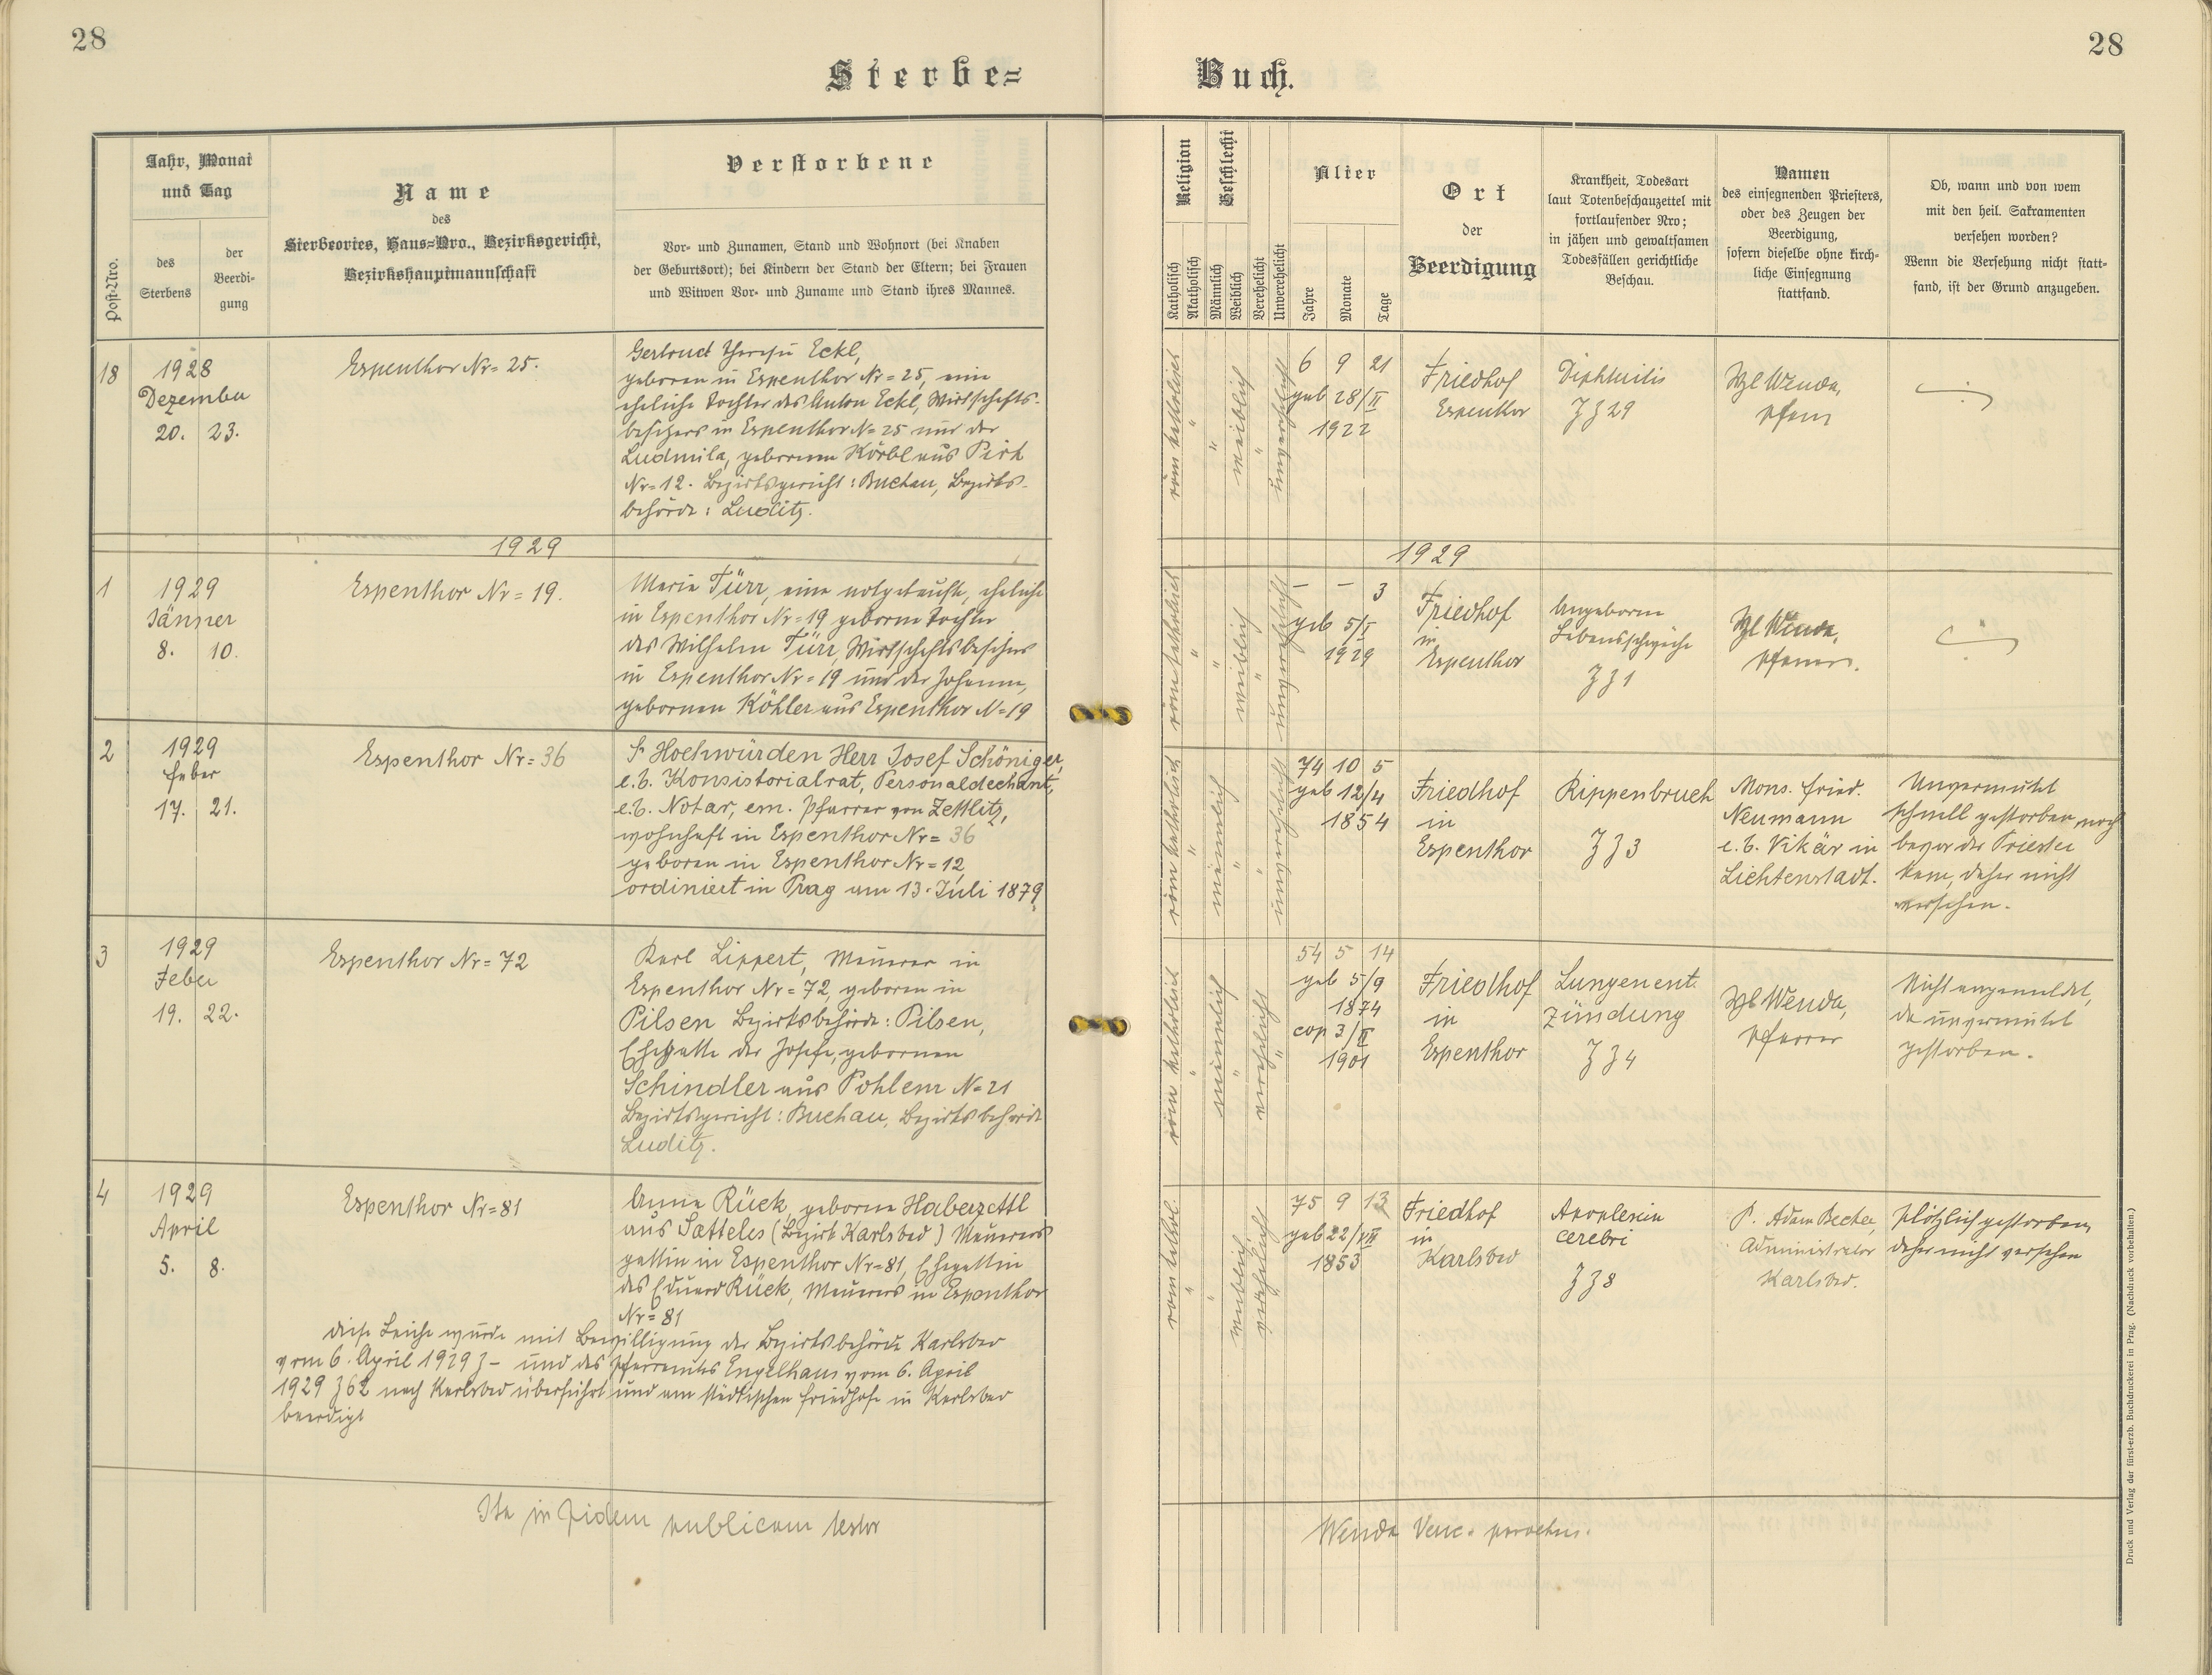 28
28
Sterbe=
Buch.
Post-Nro.
Jahr, Monat
und Tag
des
Sterbens
der
Beerdi-
gung
Name
des
Sterbeortes, Haus=Nro., Bezirksgericht,
Bezirkshauptmannschaft
Verstorbene
Vor- und Zunamen, Stand und Wohnort (bei Knaben
der Geburtsort); bei Kindern der Stand der Eltern; bei Frauen
und Witwen Vor- und Zuname und Stand ihres Mannes.
Religion
Katholisch
Akatholisch
Geschlecht
Männlich
Weiblich
Verehelicht
Unverehelicht
Alter
Jahre
Monate
Tage
Ort
der
Beerdigung
Krankheit, Todesart
laut Totenbeschauzettel mit
fortlaufender Nro;
in jähen und gewaltsamen
Todesfällen gerichtliche
Beschau.
Namen
des einsegnenden Priesters,
oder des Zeugen der
Beerdigung,
sofern dieselbe ohne kirch-
liche Einsegnung
stattfand.
Ob, wann und von wem
mit den heil. Sakramenten
versehen worden?
Wenn die Versehung nicht statt-
fand, ist der Grund anzugeben.
18
1928
Dezember
20. 23.
Espenthor Nr= 25.
Gertrud Theresia Eckl,
geboren in Espenthor Nr=25, eine
eheliche Tochter des Anton Eckl, Wirtschafts-
besitzers in Espenthor N=25 und der
Ludmila, gebornen Körbl aus Pirk
Nr=12. Bezirksgericht: Buchau, Bezirks-
behörde: Luditz.
röm katholisch
"
"
weiblich
"
unverehelicht
6 9 21
geb 28/II
1922
Friedhof
Espenthor
Diphtheritis
Z 29
Wenda,
Pfarrer
1929
1929
1
1929
Jänner
8. 10.
Espenthor Nr= 19.
Maria Türr, eine notgetaufte, eheliche
in Espenthor Nr=19 geborne Tochter
des Wilhelm Türr, Wirtschaftsbesitzers
in Espenthor Nr=19 und der Johanna,
gebornen Köhler aus Espenthor N=19
röm katholisch
"
"
weiblich
"
unverehelicht
- - 3
geb 5/I
1929
Friedhof
in
Espenthor
Angeborne
Lebensschwäche
Z 1
Wenda,
Pfarrer.
2
1929
Feber
17. 21.
Espenthor Nr= 36
Sr Hochwürden Herr Josef Schöniger,
e.b. Konsistorialrat, Personaldechant,
e.b. Notar, em. Pfarrer von Zettlitz,
wohnhaft in Espenthor Nr= 36
geboren in Espenthor Nr=12,
ordiniert in Prag am 13. Juli 1879
röm katholisch
"
männlich
"
"
unverehelicht
74 10 5
geb 12/4
1854
Friedhof
in
Espenthor
Rippenbruch
Z 3
Mons. Fried.
Neumann
e.b. Vikär in
Lichtenstadt.
Unvermutet
schnell gestorben, noch
bevor der Priester
kam, daher nicht
versehen.
3
1929
Feber
19. 22.
Espenthor Nr= 72
Karl Lippert, Maurer in
Espenthor Nr=72, geboren in
Pilsen Bezirksbehörde: Pilsen,
Ehegatte der Josefa, gebornen
Schindler aus Pohlem N=21
Bezirksgericht: Buchau, Bezirksbehörde
Luditz.
röm katholisch
"
männlich
"
verehelicht
"
54 5 14
geb 5/9
1874
cop 3/II
1901
Friedhof
in
Espenthor
Lungenent
zündung
Z 4
Wenda,
Pfarrer
Nicht angemeldet,
da unvermutet
gestorben.
4
1929
April
5. 8.
Espenthor Nr=81
Anna Rück, geborne Haberzettl
aus Satteles (Bezirk Karlsbad) Maurers
gattin in Espenthor Nr=81, Ehegattin
des Eduard Rück, Maurers in Espenthor
Nr= 81
diese Leiche wurde mit Bewilligung der Bezirksbehörde Karlsbad
vom 6. April 1929 Z - und des Pfarramtes Engelhaus vom 6. April
1929 Z 62 nach Karlsbad überführt und am städtischen Friedhofe in Karlsbad
beerdigt
röm kathol.
"
"
weiblich
verehelicht
75 9 13
geb 22/VI
1853
Friedhof
in
Karlsbad
Apoplexia
cerebri
Z 8
P. Adam Becher,
Administrator
Karlsbad.
plötzlich gestorben,
daher nicht versehen
Ita in fidem publicam testor
Wenda Venc. parochus.
Druck und Verlag der fürst-erzb. Buchdruckerei in Prag. (Nachdruck vorbehalten.)